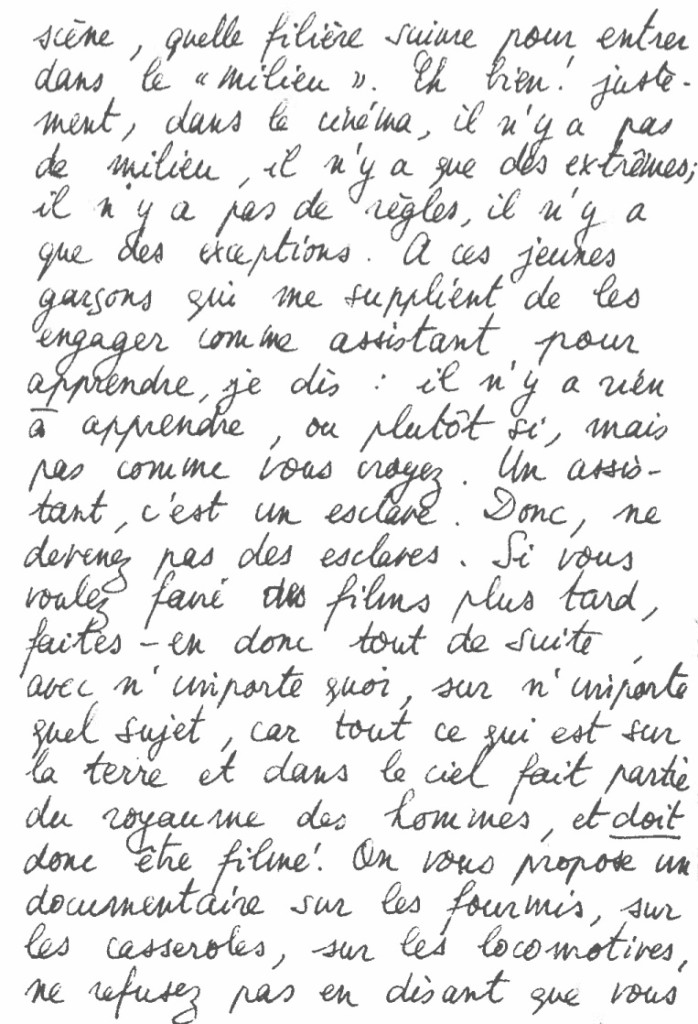 scène, quelle filière suivre pour entrer
dans le « milieu ». Eh bien ! juste-
ment, dans le cinéma, il n'y a pas
de milieu, il n'y a que des extrêmes ;
il n'y a pas de règles, il n'y a
que des exceptions. A ces jeunes
garçons qui me supplient de les
engager comme assistant pour
apprendre, je dis : il n'y a rien
à apprendre, ou plutôt si, mais
pas comme vous croyez. Un assis-
tant, c'est un esclave. Donc, ne
devenez pas des esclaves. Si vous
voulez faire des films plus tard,
faites-en donc tout de suite,
avec n'importe quoi, sur n'importe
quel sujet, car tout ce qui est sur
la terre et dans le ciel fait partie
du royaume des hommes, et doit
donc être filmé. On vous propose un
documentaire sur les fourmis, sur
les casseroles, sur les locomotives,
ne refusez pas en disant que vous